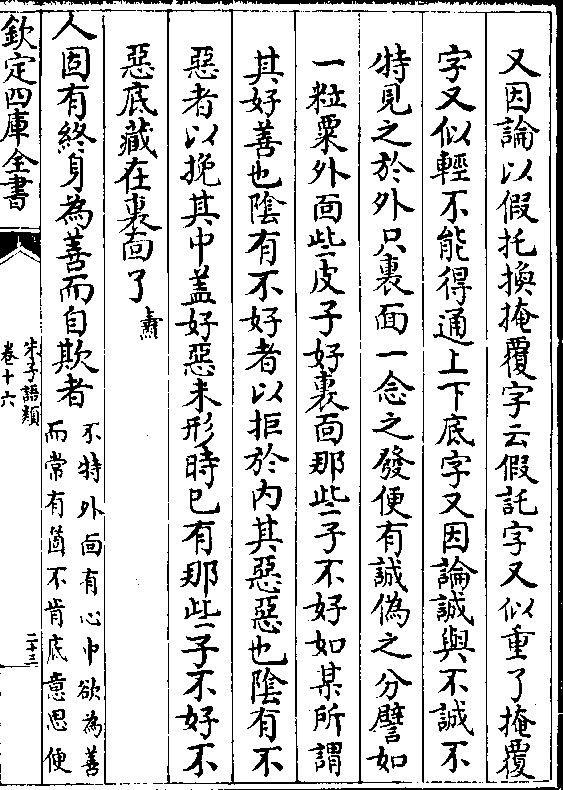 又因論以假托換掩覆字云假託字又似重了掩覆
字又似輕不能得通上下底字又因論誠與不誠不
特見之於外只裏面一念之發便有誠偽之分譬如
一粒粟外面些皮子好裏面那些子不好如某所謂
其好善也陰有不好者以拒於內其惡惡也陰有不
惡者以挽其中盖好惡未形時已有那些子不好不
惡底藏在裏面了
人固有終身為善而自欺者
不特外面有心中欲為善
而常有箇不肯底意思便
欽定四庫全書
朱子語類
卷十六
二十三